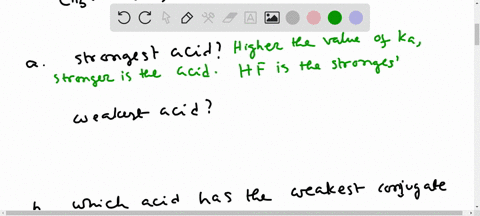 a. strongest acid? Higher the value of ka,
stronger is the acid. HF is the stronges
weakest acid?
which acid has the weakest conjugate